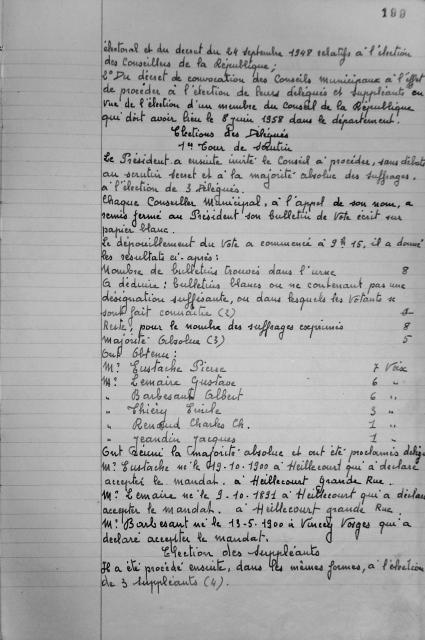 199
électoral et du decret du 24 septembre 1948 relatifs à l'élection
des Conseillers de la République;
2° Du décret de convocation des Conseils Municipaux à l'effet
de procéder à l'élection de leurs délégués et suppléants en
vue de l'élection d'un membre du Conseil de la République
qui doit avoir lieu le 8 juin 1958 dans le département.
Elections des Délégués
1er Tour de Scrutin
Le Président a ensuite invité le Conseil à procéder, sans débats
au scrutin secret et à la majorité absolue des suffrages,
à l'élection de 3 Délégués.
Chaque Conseiller Municipal, à l'appel de son nom, a
remis fermé au Président son bulletin de vote écrit sur
papier blanc.
Le dépouillement du Vote a commencé à 9h 15, il a donné
les résultats ci-après:
Nombre de bulletins trouvés dans l'urne 8
A déduire: bulletins blancs ou ne contenant pas une
désignation suffisante, ou dans lesquels les Votants se
sont fait connaître (2)
Reste, pour le nombre des suffrages exprimés 8
Majorité Absolue (3) 5
Ont Obtenu:
Mr Eustache Pierre 7 Voix
Mr Lemaire Gustave 6 "
" Barbesant Albert 6 "
" Thiéry Emile 3 "
" Renaud Charles Ch. 1 "
" Jeandin Jacques 1 "
Ont réuni la majorité absolue et ont été proclamés délég
Mr Eustache né le 19-10-1900 à Heillecourt qui a déclaré
accepter le mandat. à Heillecourt Grande Rue.
Mr Lemaire né le 9-10-1891 à Heillecourt qui a déclaré
accepter le mandat. à Heillecourt grande Rue
Mr Barbesant né le 13-5-1900 à Vincey Vosges qui a
declaré accepter le mandat.
Election des suppléants
Il a été procédé ensuite, dans les mêmes formes, à l'élection
de 3 suppléants (4).